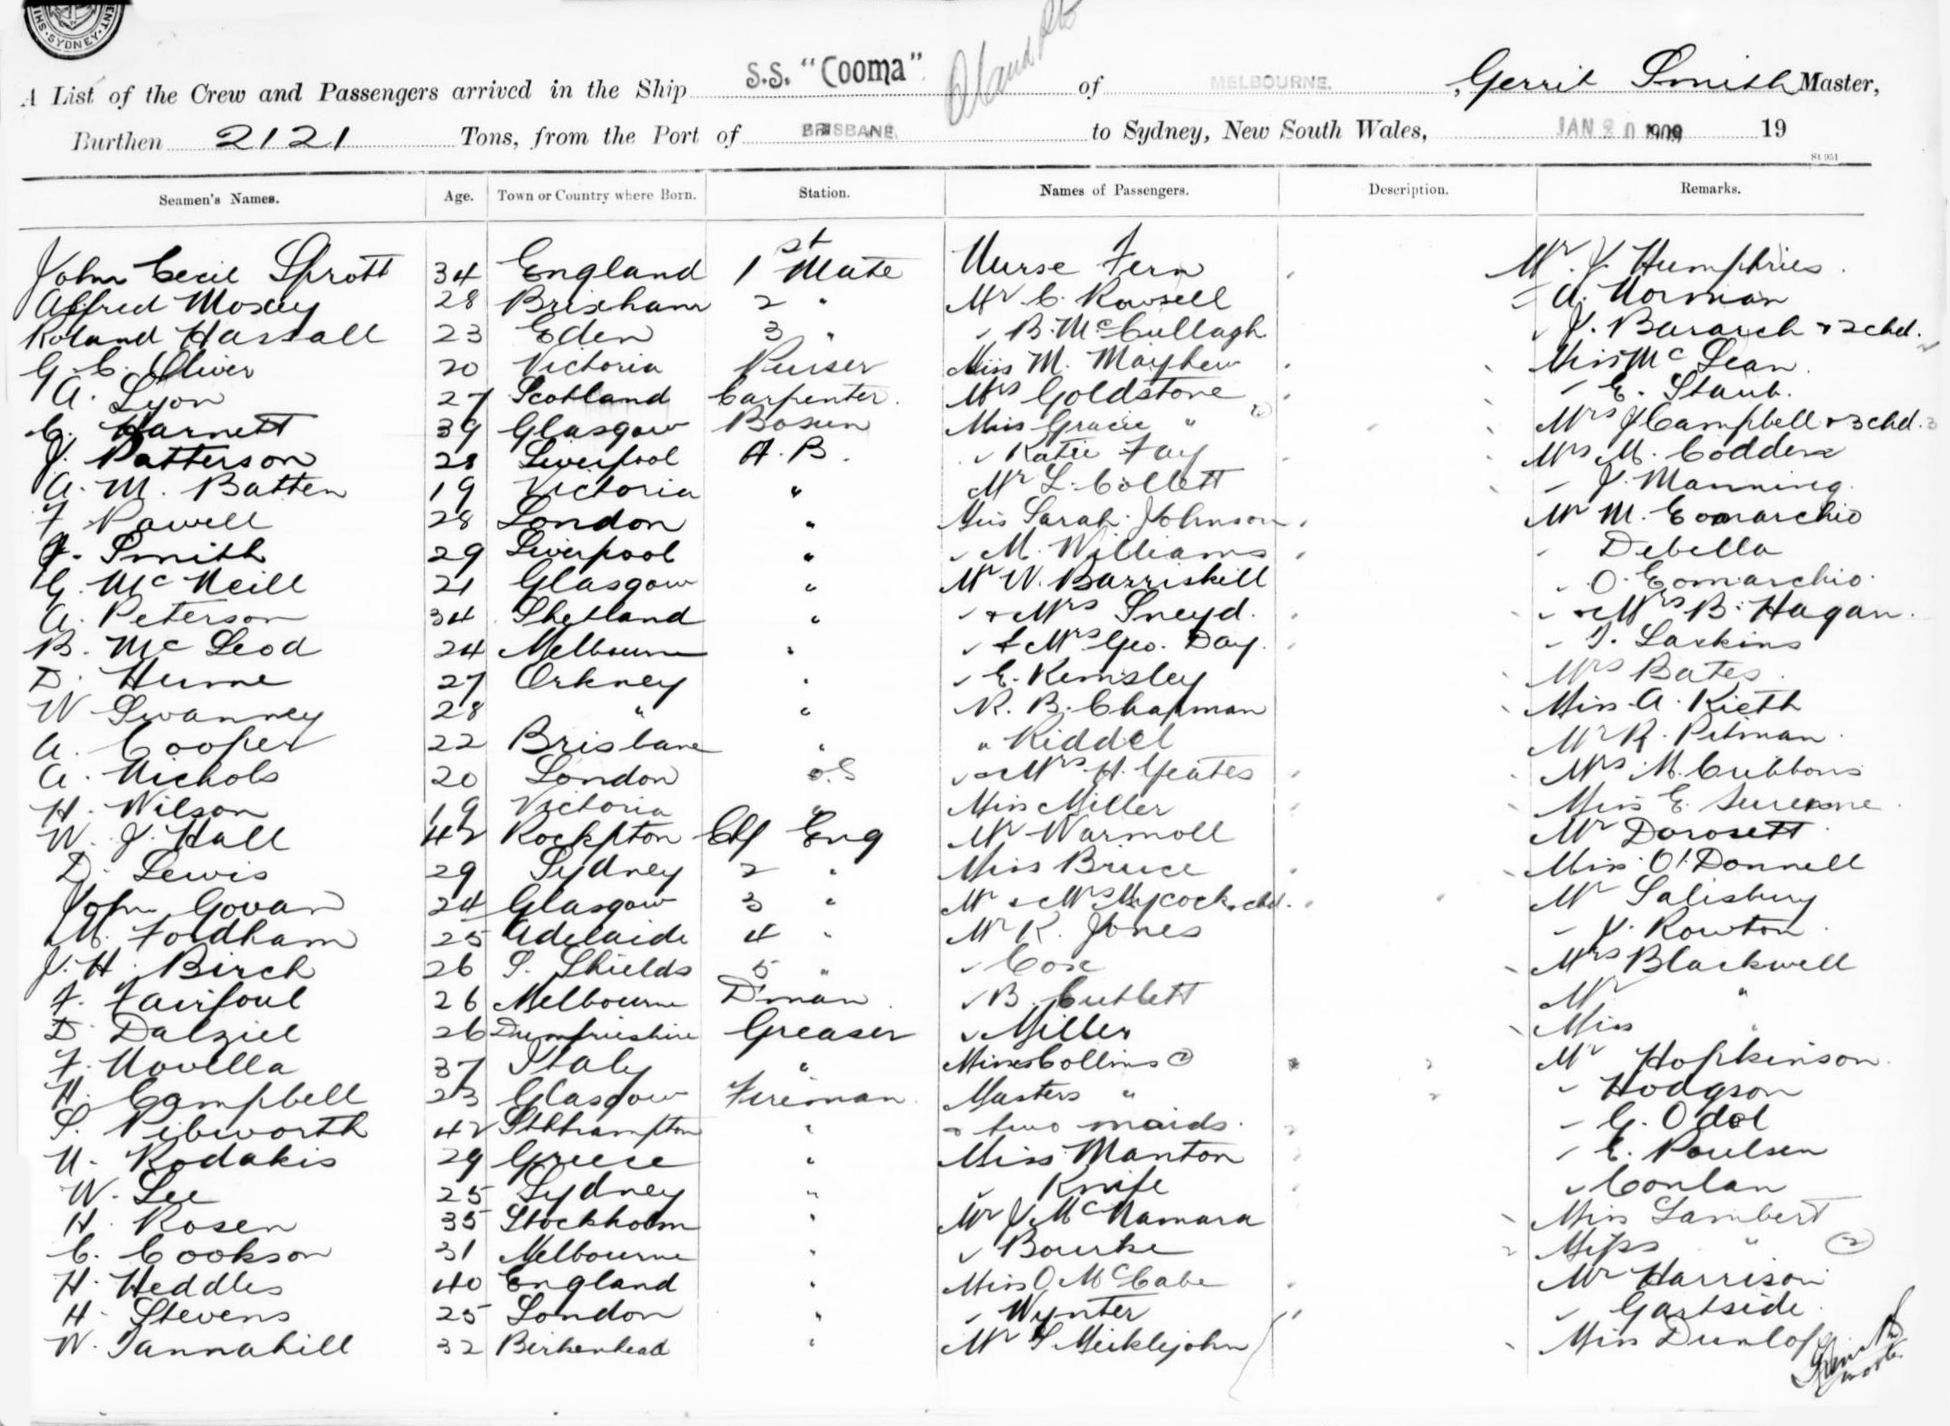 SYDNEY
A List of the Crew and Passengers arrived in the Ship S.S. "Cooma" of MELBOURNE. Gerrit Smith Master,
Burthen 2121 Tons, from the Port of BRISBANE. to Sydney, New South Wales, JAN 20 1909 19
St 951
Seamen's Names. Age. Town or Country where Born. Station. Names of Passengers. Description. Remarks.
John Cecil Sprott 34 England 1st Mate Nurse Fern Mr. J. Humphries
Alfred Moxey 28 Brixham 2 " Mr C. Rowsell " A. Norman
Roland Hassall 23 Eden 3 " " B. McCullagh " J. Bararch + 2 chd.
G. C. Oliver 20 Victoria Purser Miss M. Mayhew Miss McLean
A. Lyon 27 Scotland Carpenter Mrs Goldstone " E. Staub.
C. Harnett 39 Glasgow Bosun Miss Gracie " Mrs J Campbell + 3 chd. 3
J. Patterson 28 Liverpool A.B. " Katie Fay Mrs M. Codden
A. M. Batten 19 Victoria " Mr L. Collett " J. Manning
F. Powell 28 London " Miss Sarah Johnson Mr M. Eomarchio
J. Smith 29 Liverpool " " M. Williams " Debella
G. McNeill 21 Glasgow " Mr W. Barriskill " O. Eomarchio
A. Peterson 34 Shetland " " + Mrs Sneyd. " + Mrs B. Hagan.
B. McLeod 24 Melbourne " " & Mrs Geo. Day. " T. Laskins
D. Hume 27 Orkney " " E. Kemsley Mrs Bates
W Swanney 28 " " R. B. Chapman Miss A. Kieth
A. Cooper 22 Brisbane " " Riddel Mr R. Pitman
A. Nichols 20 London o.S " + Mrs H. Yeates Mrs M. Cubbons
H. Wilson 19 Victoria " Miss Miller Miss E.
W. J. Hall 42 Rockpton Chf Eng Mr Warmoll Mr Dorosett
D. Lewis 29 Sydney 2 " Miss Bruce Miss O'Donnell
John Govan 24 Glasgow 3 " Mr + Mrs Hycock + chd. Mr Salisbury
M. Fordham 25 Adelaide 4 " Mr K. Jones " J. Rowton
J. H. Birch 26 S. Shields 5 " " Cox Mrs Blackwell
F. Fairfoul 26 Melbourne D'man " B. Cutlett Mr "
D. Dalziel 26 Dumfrieshire Greaser " Miller Miss "
F. Novella 37 Italy " Misses Collins 2 Mr Hopkinson
H. Campbell 23 Glasgow Fireman Masters " " Hodgson
S. Pibworth 42 Sthhampton " + two maids. " G. Odol
N. Rodakis 29 Greece " Miss Manton " E. Poulsen
W. Lee 25 Sydney " " Knife " Conlan
H. Rosen 35 Stockholm " Mr J. McNamara Miss Lambert
C. Cookson 31 Melbourne " " Bourke Miss " 2
H. Heddles 40 England " Miss O McCabe Mr Harrison
H. Stevens 25 London " " Wynter " Gartside
W. Tannahill 32 Birkenhead " Mr S Meiklejohn Miss Dunlop